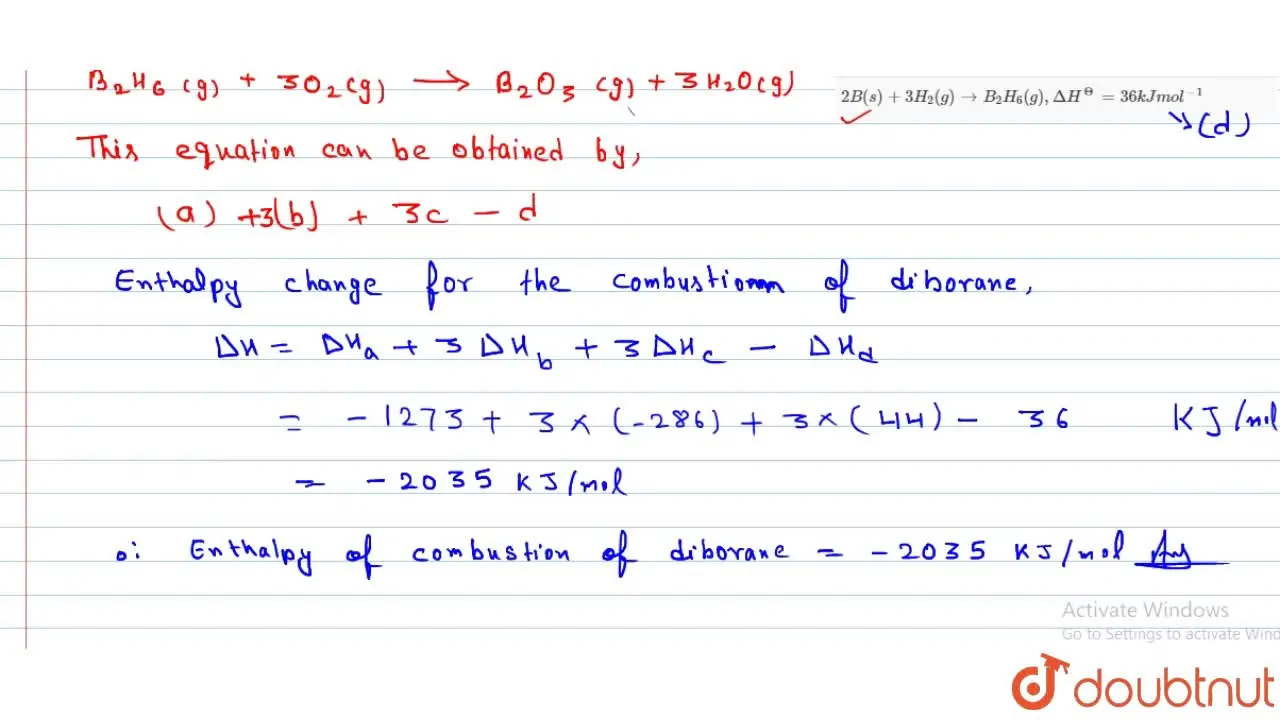 B₂H₆ (g) + 3O₂(g) ⟶ B₂O₃ (g) + 3H₂O(g)
2B(s) + 3H₂(g) → B₂H₆(g), ΔH^Θ = 36kJmol⁻¹
↘(d)
This equation can be obtained by,
(a) +3(b) + 3c − d
Enthalpy change for the combustion of diborane,
ΔH = ΔHₐ + 3 ΔH_b + 3 ΔH_c − ΔH_d
= −1273 + 3 × (−286) + 3 × (44) − 36 KJ/mol
= −2035 KJ/mol
∴ Enthalpy of combustion of diborane = −2035 KJ/mol Ans
Activate Windows
Go to Settings to activate Wind
doubtnut